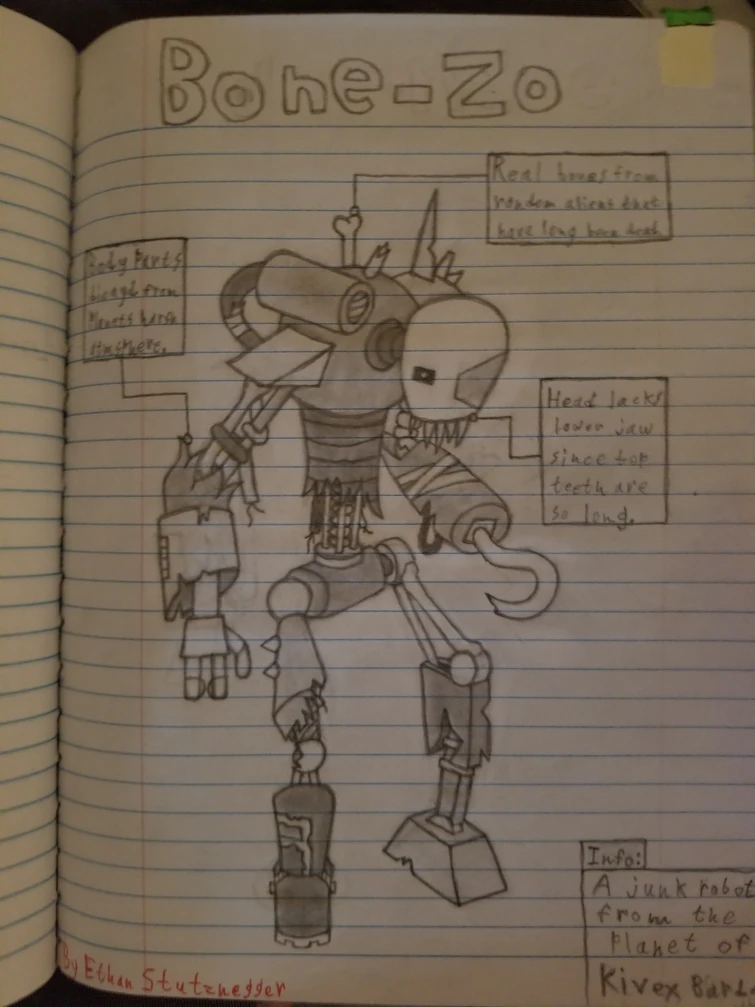 Bone-Zo
Real bones from
random alient that
have long been dead.
Body Parts
from
Planets harsh
atmsphere.
Head lacks
lower jaw
since top
teeth are
so long.
Info:
A junk robot
from the
Planet of
Kivex
By Ethan Stutznegger